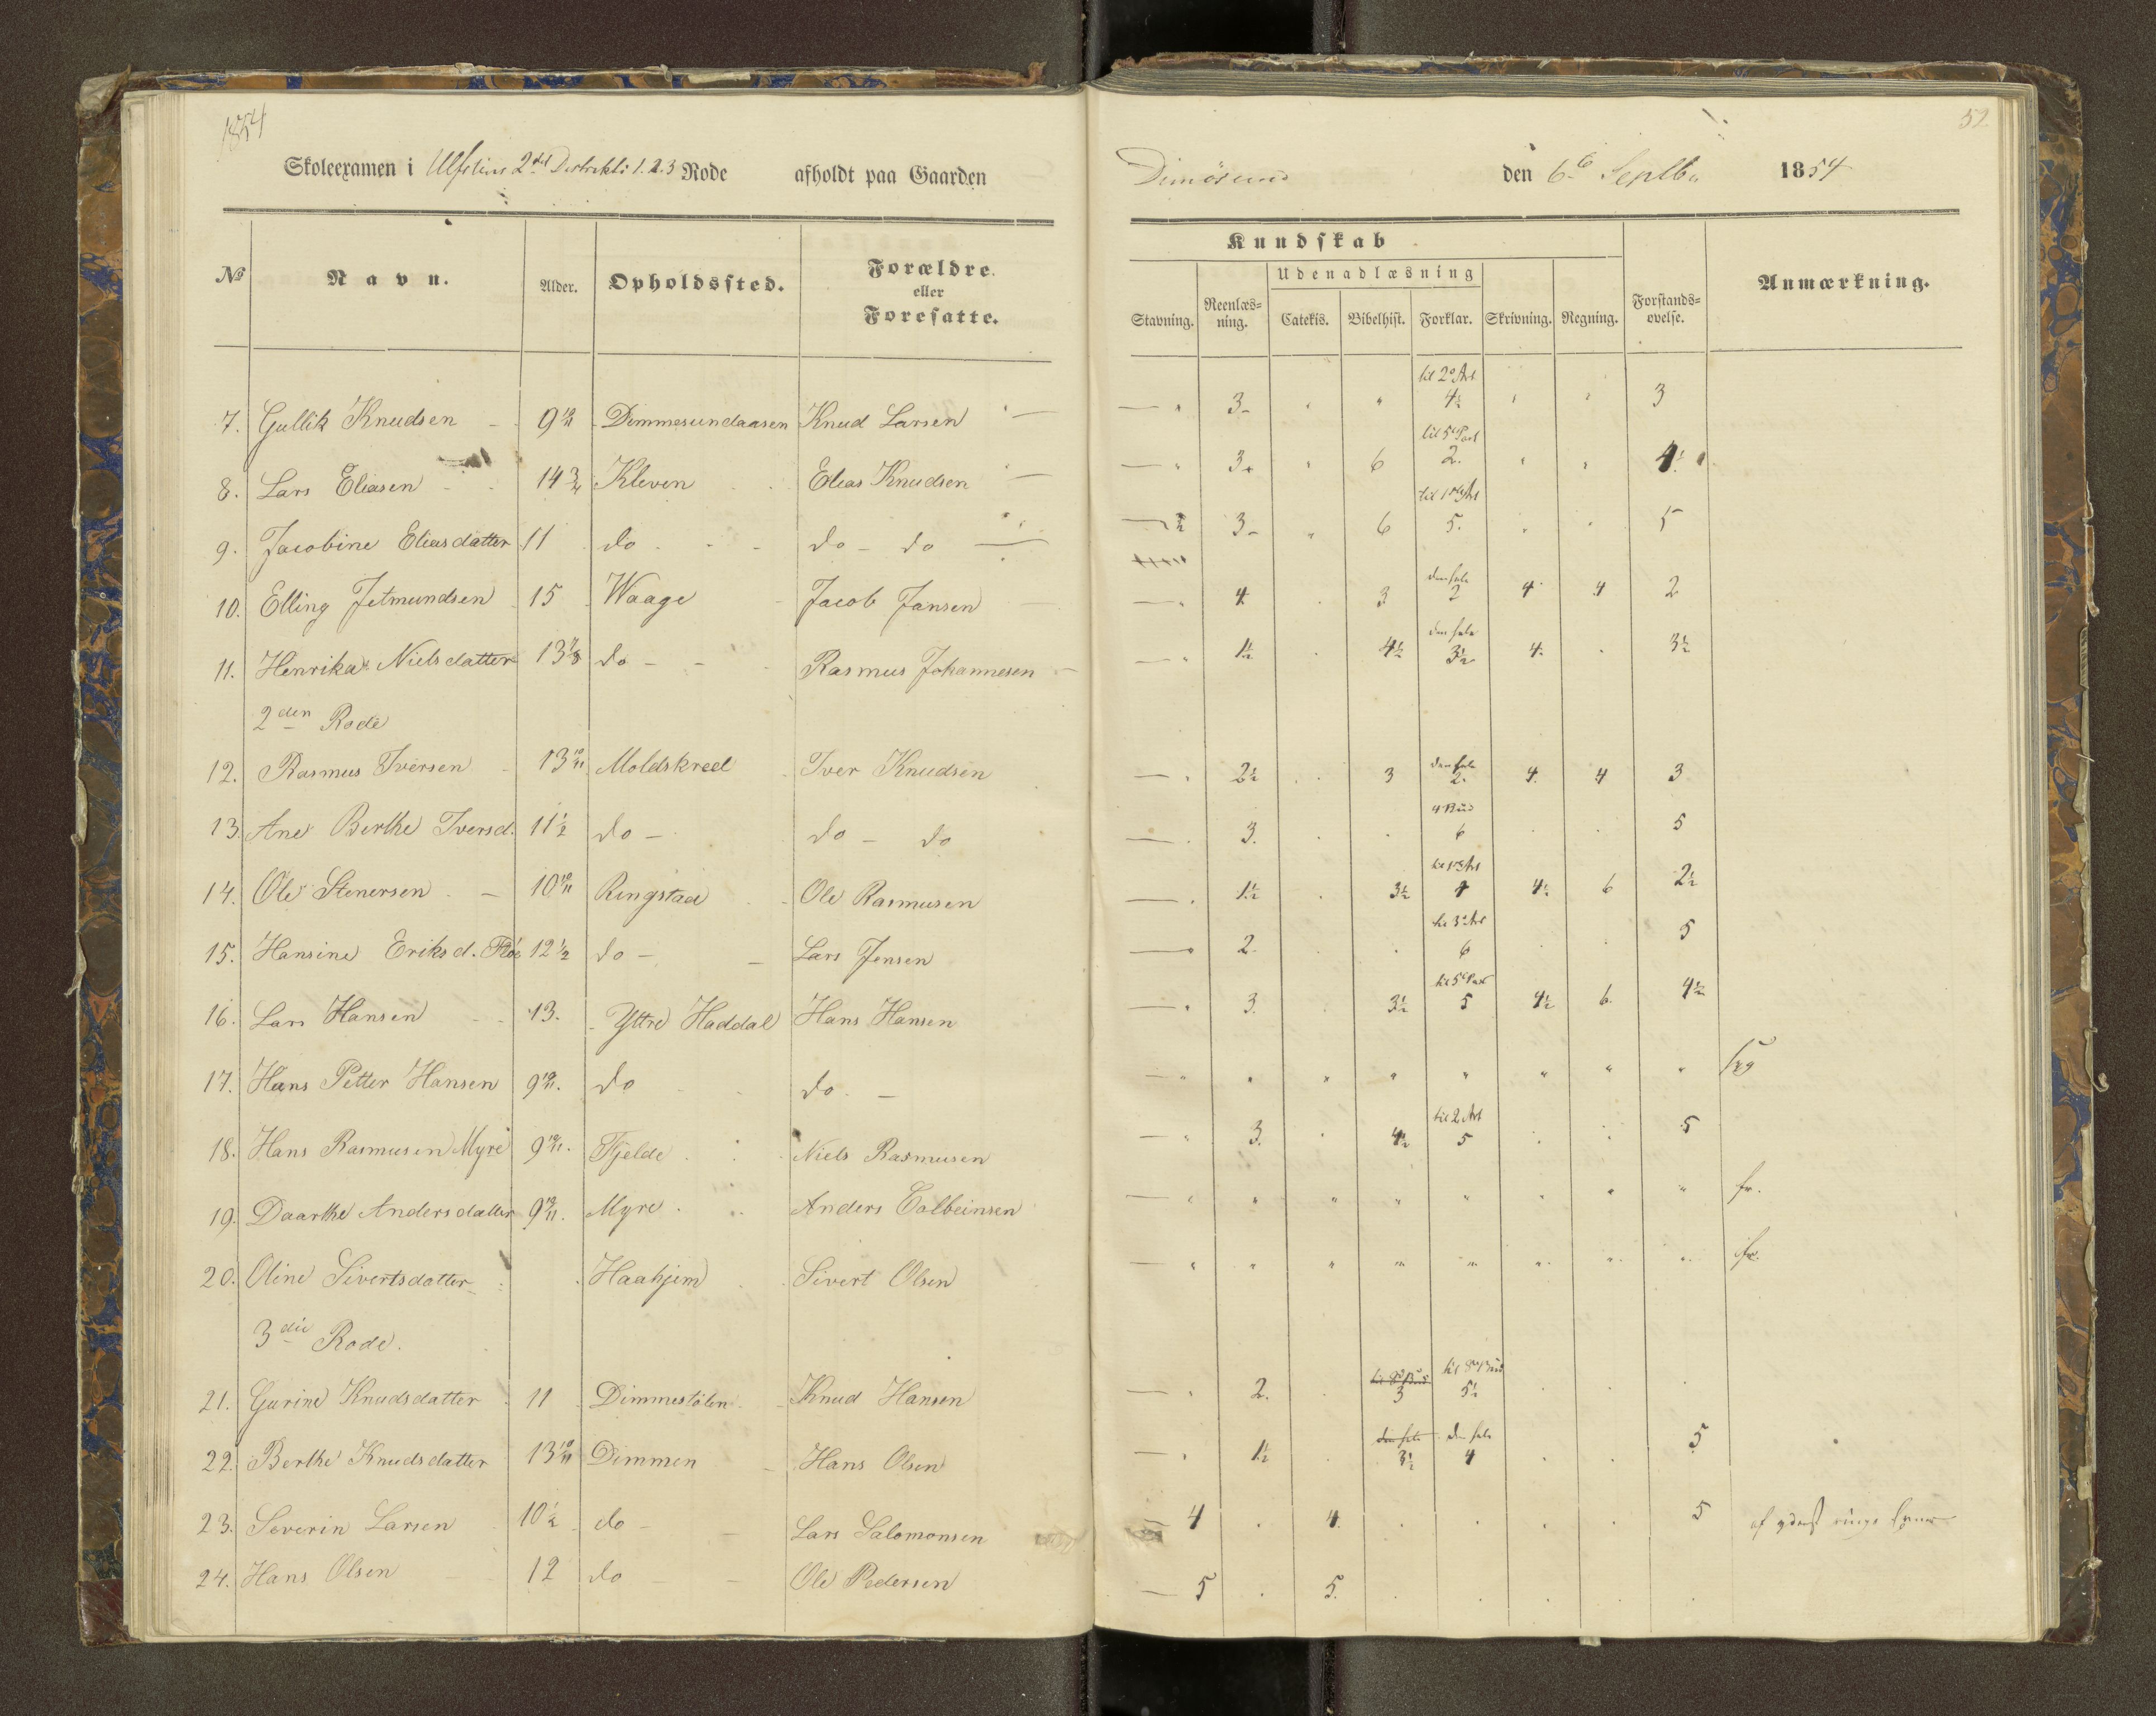 1854
52
Skoleexamen i Ulfsteins 2det Distrikts 1. 2. 3 Rode afholdt paa Gaarden Dimösund den 6te Septbr 1854
Kundskab
Udenadlæsning
No Navn. Alder. Opholdssted. Forældre eller Foresatte. Stavning. Reenlæs-ning. Catekis. Bibelhist. Forklar. Skrivning. Regning. Forstands-øvelse. Anmærkning.
til 2 Art
7. Gullik Knudsen 9 10/11 Dimmesundaasen Knud Larsen — " 3- " " 4½ " " 3
til 5 Part
8. Lars Eliasen 14 3/4 Kleven Elias Knudsen — " 3+ " 6 2. " " 4½
9. Jacobine Eliasdatter 11 do do - do 3- " 6 5. " " 5
den hele
10. Elling Jetmundsen 15 Waage Jacob Jansen — " 4 3 2 4 4 2
den hele
11. Henrika Nielsdatter do Rasmus Johannesen — " 1½ 4½ 3½ 4 3½
2den Rode
den hele
12. Rasmus Iversen 13 10/11 Moldskred Iver Knudsen — 2½ 3 2. 4 4 3
4 Bud
13. Ane Berthe Iversd. 11½ do - do - do — 3. 6 5
14. Ole Stenersen 10 10/11 Ringstad Ole Rasmusen — 1½ 3½ 4 4½ 6 2½
til 3 Art
15. Hansine Eriksd. Fløe 12½ do - Lars Jensen — 2 6 5
til 5 Part
16. Lars Hansen 13. Yttre Haddal Hans Hansen — 3. 3½ 5 4½ 6. 4½
17. Hans Petter Hansen 9 10/11. do do - — " " " " " " " "
til 2 Art
18. Hans Rasmusen Myre 9 10/11. Fjelde Niels Rasmusen — " 3. 4½ 5 5
19. Daarthe Andersdatter 9 10/11. Myre Anders Colbeinsen — " " " " " " " " fr.
20. Oline Sivertsdatter Haahjem Sivert Olsen — " " " " " " " " fr.
3die Rode.
til 8 Bud til 8 Bud
21. Gurine Knudsdatter 11 Dimmestölen Knud Hansen — 2. 3 5½
den hele den hele
22. Berthe Knudsdatter 13 10/11 Dimmen Hans Olsen — 1½ 3½ 4 5
23. Severin Larsen 10½ do - Lars Salomonsen — 4 . 4. . . . . 5 af yderst ringe
24. Hans Olsen 12 do Ole Pedersen — 5 . 5.